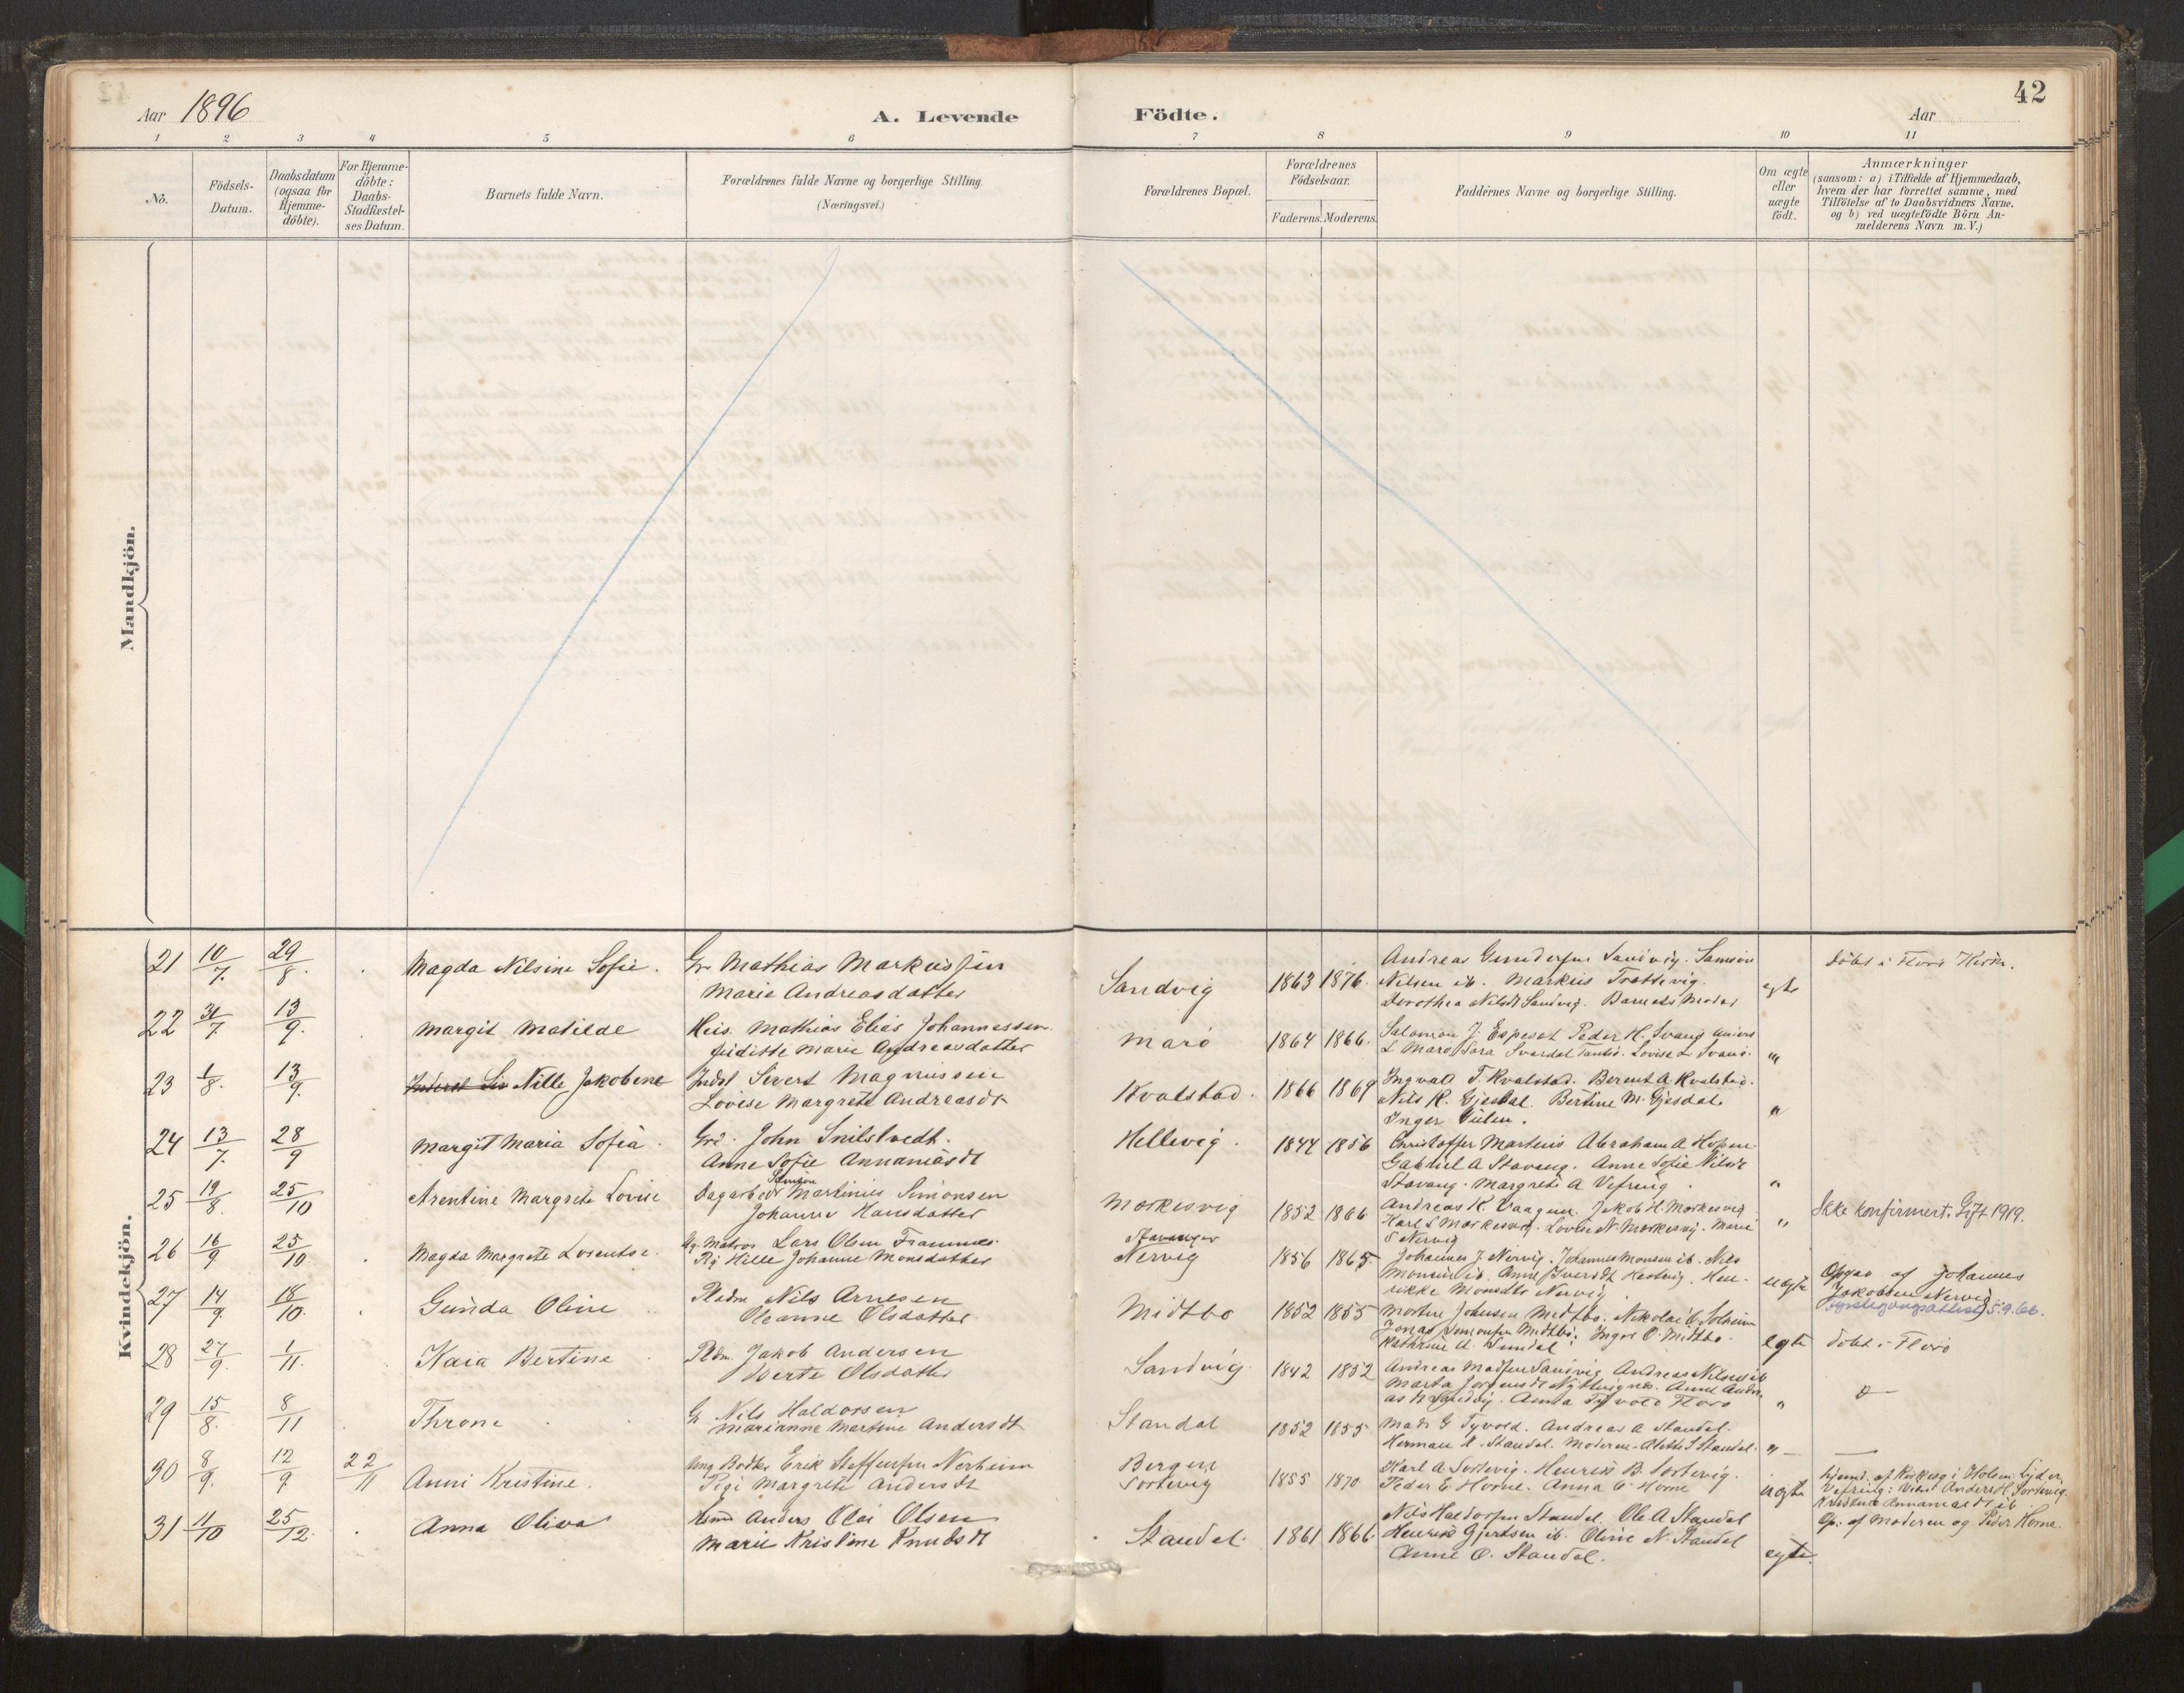 42
Aar 1896
A. Levende
Födte.
Aar
1 2 3 4 5 6 7 8 9 10 11
No.
Födsels-
Datum.
Daabsdatum
(ogsaa for
Hjemme-
döbte).
For Hjemme-
döbte:
Daabs-
Stadfæstel-
ses Datum.
Barnets fulde Navn.
Forældrenes fulde Navne og borgerlige Stilling.
(Næringsvei.)
Forældrenes Bopæl.
Forældrenes
Födselsaar.
Faderens. Moderens.
Faddernes Navne og borgerlige Stilling.
Om ægte
eller
uægte
födt.
Anmærkninger
(saasom: a) i Tilfælde af Hjemmedaab,
hvem der har forrettet samme, med
Tilföielse af to Daabsvidners Navne,
og b) ved uægtefödte Börn An-
melderens Navn m.V.)
Mandkjön.
Kvindekjön.
21 10/7. 29/8. Magda Nilsine Sofie. Gr. Mathias Markussen
Marie Andreasdatter
Sandvig 1863 1876.
Andreas Gundersen Sandvig. Samson
Nilsen ib. Markus Trættevig.
Dorothea Nilsdt Sandvig. Barnets Moder
egte
döbt i Florö Kirke.
22 31/7. 13/9. Margit Matilde Hus. Mathias Elias Johannessen
Juditte Marie Andreasdatter
Marö 1864 1866.
Salomon J. Espeset Peder H. Svanö
L Marö Sara Svardal Lovise L Svanö.
"
23 1/8. 13/9. Nille Jakobene Inds. Sivert Magnussen
Lovise Margrete Andreasdt
Kvalstad. 1866 1869
Ingvald T. Kvalstad. Berent A. Kvalstad.
Nils R. Gjesdal. Bertine M. Gjesdal.
Inger Gulen.
"
24 13/7. 28/9 Margit Maria Sofia. Grd. John Snilstvedt.
Anne Sofie Annaniasdt
Hellevig. 1844 1856
Christoffer Martens Abraham A Hopen
Gabriel A Stavang. Anne Sofie Nilsdt
Stavang. Margrete A Vefring.
"
25 19/8. 25/10 Arentine Margrete Lovise
Simon
Dagarbeder Martinius Simonsen
Johanne Hansdatter
Morkesvig 1852 1866
Andreas K. Vaagene Jakob H. Morkesvig
Karl S Morkesvig. Lovise N. Morkesvig. Marie
S Nervig
"
Ikke konfirmert. Gift 1919.
26 16/9 25/10. Magda Margrete Lorentse. Ug. Matros Lars Olsen Framnes.
Pig Hille Johanne Monsdatter
Stavanger
Nervig 1856 1865.
Johannes J. Nervig. Johannes Monsen ib. Nils
Monsen ib. Anne Iversdt Hestvig. Hen-
rikke Monsdtr Nervig
uegte
Opgav af Johannes
Jakobsen Nervig
5.9.66.
27 14/9. 18/10. Gunda Oline Pladsm Nils Arnesen
Oleanne Olsdatter
Midtbö 1852 1855
Morten Johnsen Midtbö. Nikolai O Solheim
Jonas Simonsen Midtbö. Inger O. Midtbö.
Kathrine A. Sundal
egte
28 27/9. 1/11. Kaia Bertine Pladsm. Jakob Andersen
Berte Olsdatter
Sandvig 1842 1852
döbt i Florö
Andreas Madsen Sandvig Andreas Nilsen ib
Marta Jörgensdt Anne Andre-
asdt Sandvig. Anna Tyvold Florö
"
29 15/8. 8/11 Throne Gr. Nils Haldorsen
Marianne Martine Andersdt
Standal 1852 1855
Mads G Tyvold. Andreas A Standal.
Herman A. Standal. Moderen. Alette S Standal.
"
30 8/9. 12/9 22/11 Anni Kristine. Ung. Bødker Erik Steffensen Nerheim
Pige Margrete Andersdt
Bergen
Sortevig 1855 1870
Karl A. Sortevig. Henrik B. Sortevig.
Peder E. Horne. Anna E. Horne
uegte
hjemd. af Kirkesg i Holsen: Lyder
Vefring: Vidn: Anders H. Sortevig
Kristine Annaniasdt ib
Op. af Moderen og Peder Horne.
31 11/10 25/12. Anna Oliva Husm Anders Olai Olsen
Marie Kristine Knudsdt
Standal. 1861 1866
Nils Haldorsen Standal. Ole A Standal
Henrik Gjertsen ib. Oline N. Standal
Anne O. Standal.
egte.